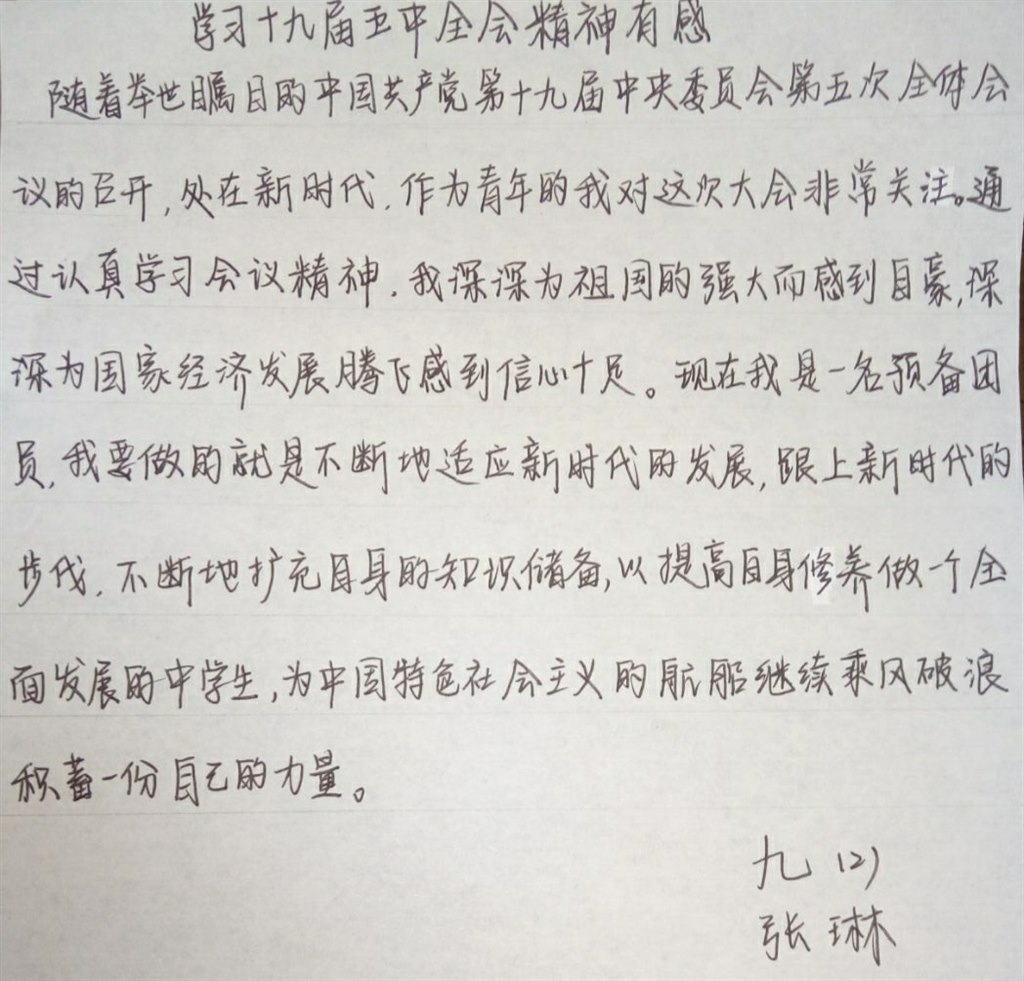 学习十九届五中全会精神有感
随着举世瞩目的中国共产党第十九届中央委员会第五次全体会
议的召开,处在新时代,作为青年的我对这次大会非常关注。通
过认真学习会议精神,我深深为祖国的强大而感到自豪,深
深为国家经济发展腾飞感到信心十足。现在我是一名预备团
员,我要做的就是不断地适应新时代的发展,跟上新时代的
步伐,不断地扩充自身的知识储备,以提高自身修养做一个全
面发展的中学生,为中国特色社会主义的航船继续乘风破浪
积蓄一份自己的力量。
九(2)
张琳